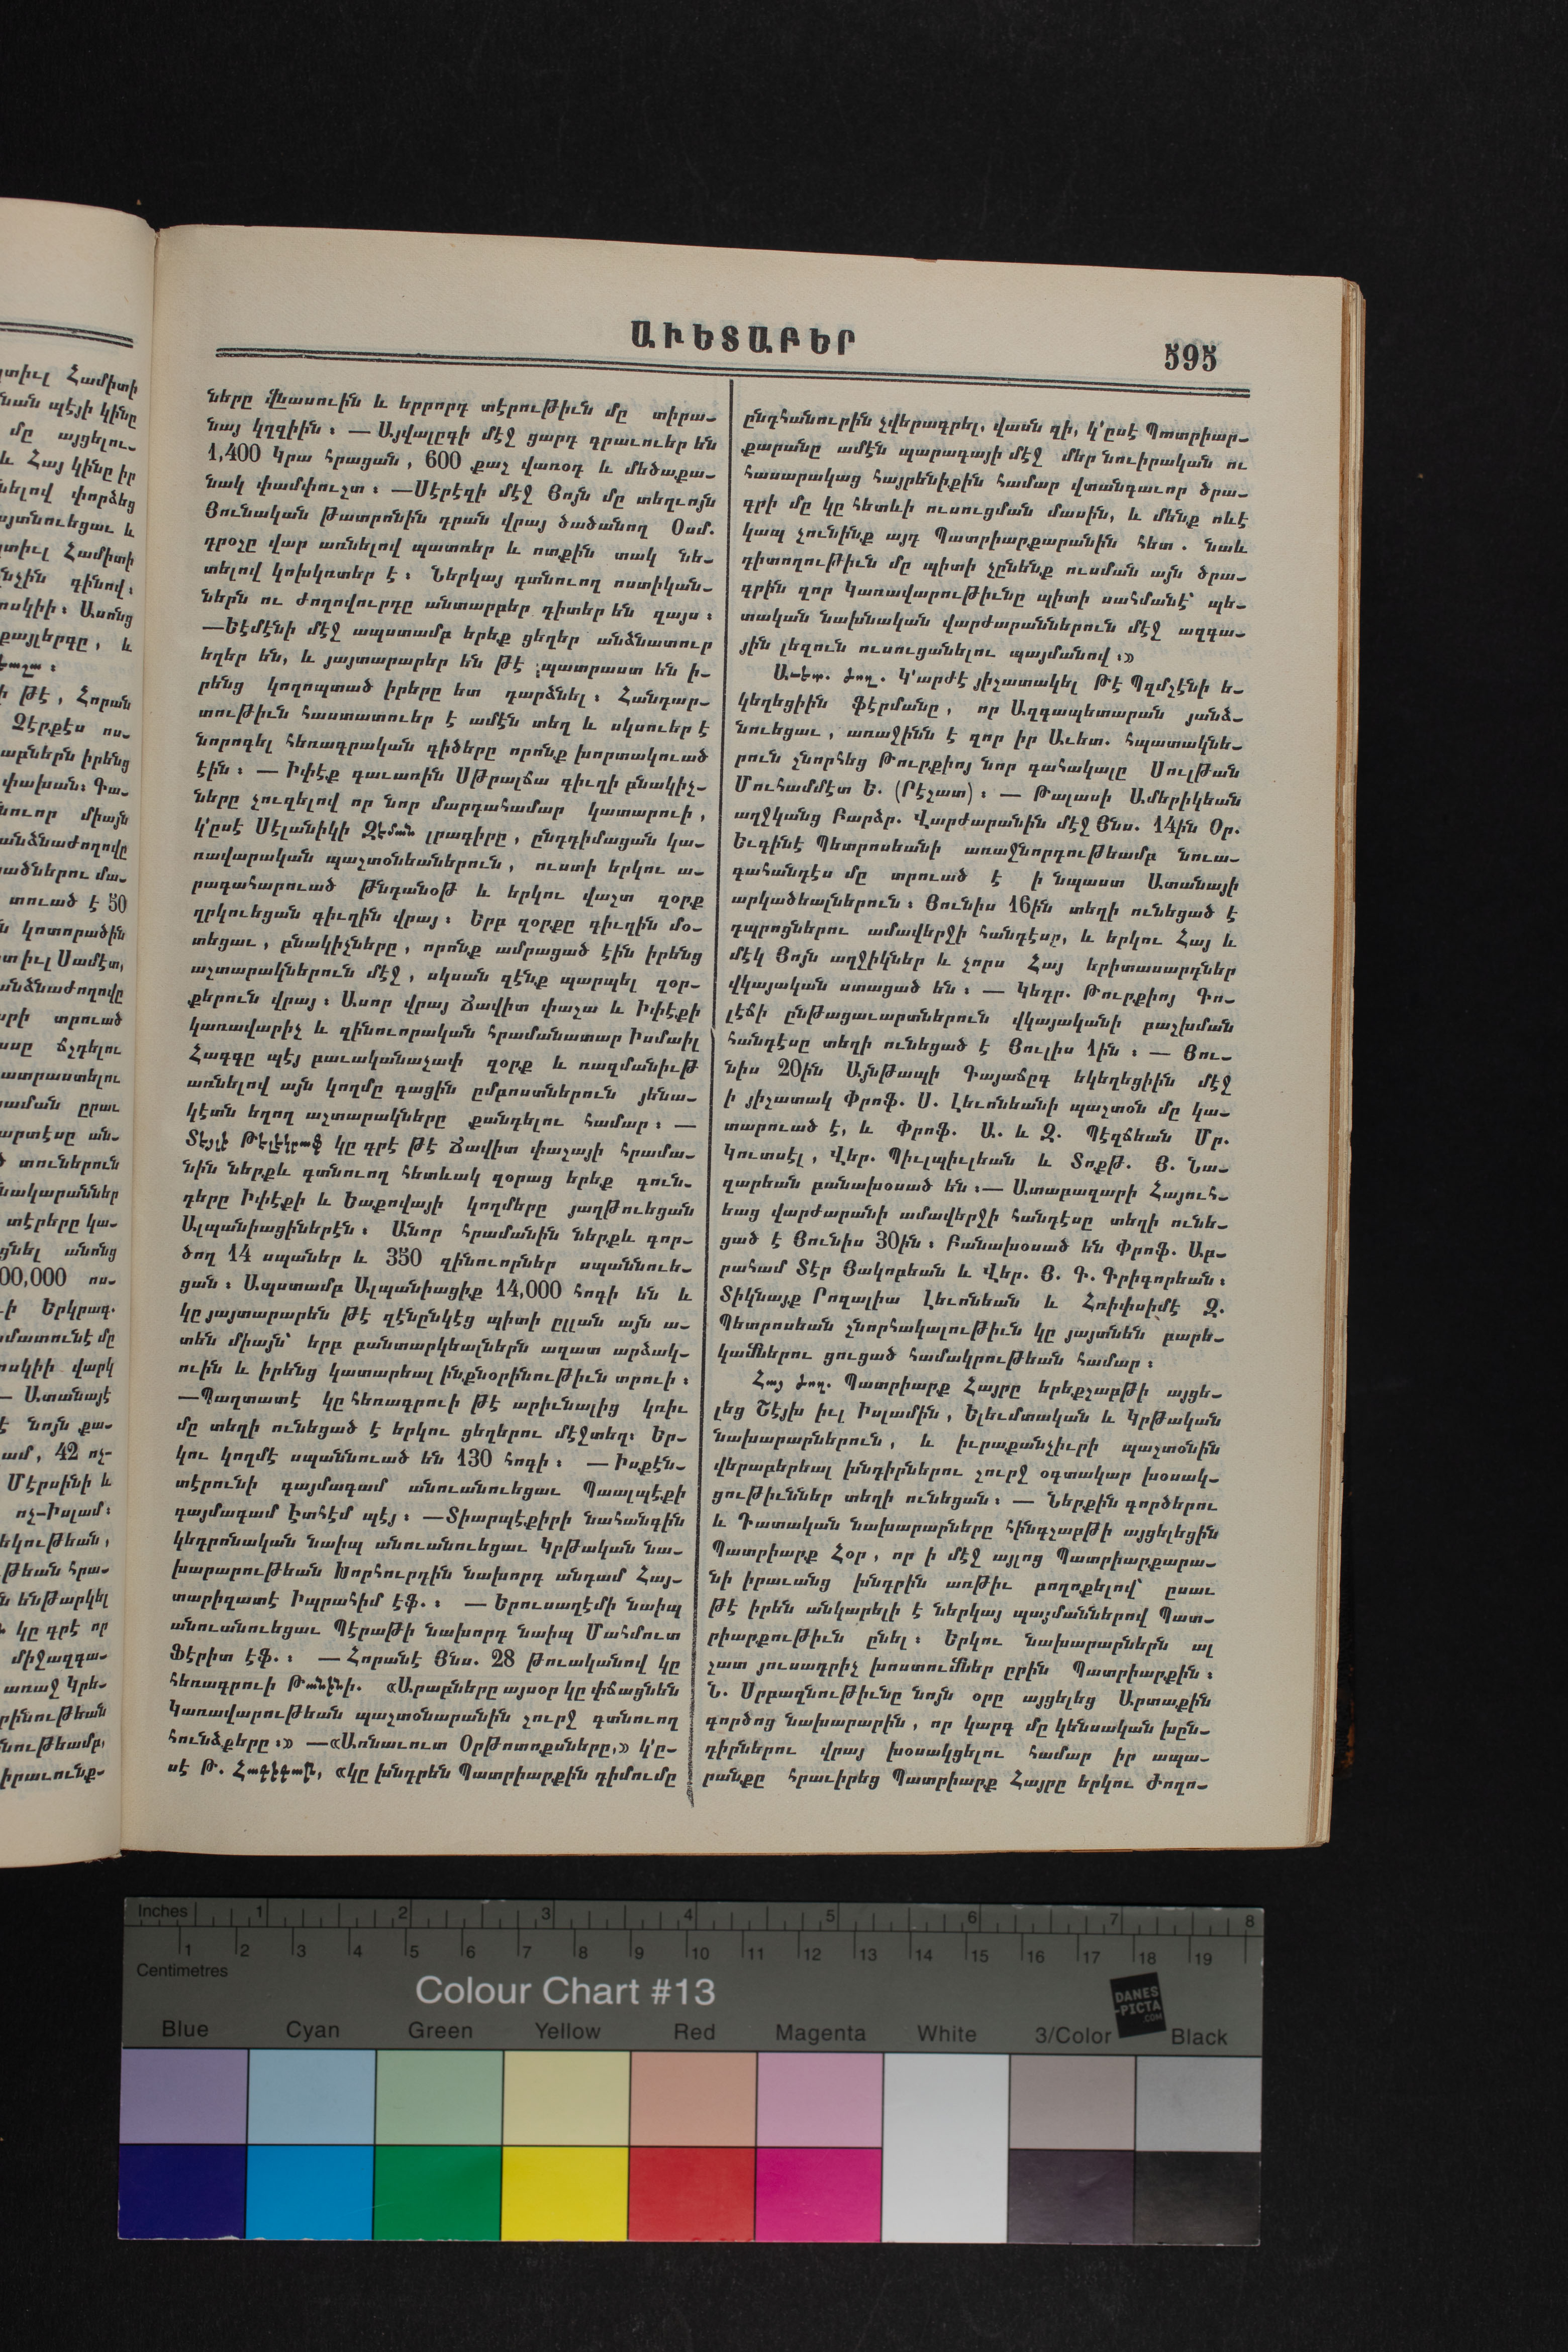 ԱՒԵՏԱԲԵՐ
595
ները վնասուին և երրորդ տէրութիւն մը տիրա–
նայ կղզիին։ — Այվալըգի մէջ ցարդ գրաւուեր են
1,400 Կրա հրացան, 600 քաշ վառօդ և մեծաքա–
նակ փամփուշտ։ —Սէրէզի մէջ Յոյն մը տեղւոյն
Յունական Թատրոնին դրան վրայ ծածանող Օսմ.
դրօշը վար առնելով պատռեր և ոտքին տակ նե–
տելով կոխկռտեր է։ Ներկայ գտնուող ոստիկան–
ներն ու ժողովուրդը անտարբեր դիտեր են զայս։
—Եէմէնի մէջ ապստամբ երեք ցեղեր անձնատուր
եղեր են, և յայտարարեր են թէ պատրաստ են ի–
րենց կողոպտած իրերը ետ դարձնել։ Հանդար–
տութիւն հաստատուեր է ամէն տեղ և սկսուեր է
նորոգել հեռագրական գիծերը որոնք խորտակուած
էին։ — Իփէք գաւառին Սթրալճա գիւղի բնակիչ–
ները չուզելով որ նոր մարդահամար կատարուի,
կ՚ըսէ Սէլանիկի Զէման լրագիրը, ընդդիմացան կա–
ռավարական պաշտօնեաներուն, ուստի երկու ա–
րագահարուած թնդանօթ և երկու վաշտ զօրք
ղրկուեցան գիւղին վրայ։ Երբ զօրքը գիւղին մօ–
տեցաւ, բնակիչները, որոնք ամրացած էին իրենց
աշտարակներուն մէջ, սկսան զէնք պարպել զօր–
քերուն վրայ։ Ասոր վրայ Ճավիտ փաշա և Իփէքի
կառավարիչ և զինուորական հրամանատար Իսմաիլ
Հագգը պէյ բաւականաչափ զօրք և ռազմանիւթ
առնելով այն կողմը գացին ըմբոստներուն յենա–
կէտն եղող աշտարակները քանդելու համար։ —
Տէյլի Թէլէկրաֆ կը գրէ թէ Ճավիտ փաշայի հրամա–
նին ներքև գտնուող հետևակ զօրաց երեք գուն–
դերը Իփէքի և Եաքովայի կողմերը յաղթուեցան
Ալպանիացիներէն։ Անոր հրամանին ներքև գոր–
ծող 14 սպաներ և 350 զինուորներ սպաննուե–
ցան։ Ապստամբ Ալպանիացիք 14,000 հոգի են և
կը յայտարարեն թէ զէնընկէց պիտի ըլլան այն ա–
տեն միայն՝ երբ բանտարկեալներն ազատ արձակ–
ուին և իրենց կատարեալ ինքնօրինութիւն տրուի։
—Պաղտատէ կը հեռագրուի թէ արիւնալից կռիւ
մը տեղի ունեցած է երկու ցեղերու մէջտեղ։ Եր–
կու կողմէ սպաննուած են 130 հոգի։ — Իսքէն–
տէրունի գայմագամ անուանուեցաւ Պաալպէքի
գայմագամ Էտհէմ պէյ։ —Տիարպէքիրի նահանգին
կեդրոնական նաիպ անուանուեցաւ Կրթական նա–
խարարութեան Խորհուրդին նախորդ անդամ Հայ–
տարիզատէ Իպրահիմ էֆ.։ — Երուսաղէմի նաիպ
անուանուեցաւ Պէրաթի նախորդ նաիպ Մահմուտ
Ֆէրիտ էֆ.։ — Հորանէ Յնս. 28 թուականով կը
հեռագրուի Թանինի. «Արաբները այսօր կը փճացնեն
Կառավարութեան պաշտօնարանին շուրջ գտնուող
հունձքերը։» —«Առնաւուտ Օրթոտոքսները,» կ՚ը–
սէ Թ. Հագիգաթ, «կը խնդրեն Պատրիարքին դիմումը
ընդհանուրին չվերագրել, վասն զի, կ՚ըսէ Պատրիար–
քարանը ամէն պարագայի մէջ մեր նուիրական ու
հասարակաց հայրենիքին համար վտանգաւոր ծրա–
գրի մը կը հետևի ուսուցման մասին, և մենք ոևէ
կապ չունինք այդ Պատրիարքարանին հետ. նաև
դիտողութիւն մը պիտի չընենք ուսման այն ծրա–
գրին զոր Կառավարութիւնը պիտի սահմանէ՝ պե–
տական նախնական վարժարաններուն մէջ ազգա–
յին լեզուն ուսուցանելու պայմանով։»
Աւետ. ժող. Կ՚արժէ յիշատակել թէ Պզմչէնի ե–
կեղեցիին ֆէրմանը, որ Ազգապետարան յանձ–
նուեցաւ, առաջինն է զոր իր Աւետ. հպատակնե–
րուն շնորհեց Թուրքիոյ նոր գահակալը Սուլթան
Մուհամմէտ Ե. (Րէշատ)։ — Թալասի Ամերիկեան
աղջկանց Բարձր. Վարժարանին մէջ Յնս. 14ին Օր.
Եւգինէ Պետրոսեանի առաջնորդութեամբ նուա–
գահանդէս մը տրուած է ի նպաստ Ատանայի
արկածեալներուն։ Յունիս 16ին տեղի ունեցած է
դպրոցներու ամավերջի հանդէսը, և երկու Հայ և
մէկ Յոյն աղջիկներ և չորս Հայ երիտասարդներ
վկայական ստացած են։ — Կեդր. Թուրքիոյ Գո–
լէճի ընթացաւարտներուն վկայականի բաշխման
հանդէսը տեղի ունեցած է Յուլիս 1ին։ — Յու–
նիս 20ին Այնթապի Գայաճըգ եկեղեցիին մէջ
ի յիշատակ Փրոֆ. Ս. Լեւոնեանի պաշտօն մը կա–
տարուած է, և Փրոֆ. Ա. և Զ. Պէզճեան Մր.
Կուտսէլ, Վեր. Պիւլպիւլեան և Տոքթ. Յ. Նա–
զարեան բանախօսած են։— Ատաբազարի Հայուհ–
եաց վարժարանի ամավերջի հանդէսը տեղի ունե–
ցած է Յունիս 30ին։ Բանախօսած են Փրոֆ. Աբ–
րահամ Տէր Յակոբեան և Վեր. Յ. Գ. Գրիգորեան։
Տիկնայք Րոզալիա Լեւոնեան և Հռիփսիմէ Զ.
Պետրոսեան շնորհակալութիւն կը յայտնեն բարե–
կամներու ցուցած համակրութեան համար։
Հայ ժող. Պատրիարք Հայրը երեքշաբթի այցե–
լեց Շէյխ իւլ Իսլամին, Ելեւմտական և Կրթական
նախարարներուն, և իւրաքանչիւրի պաշտօնին
վերաբերեալ խնդիրներու շուրջ օգտակար խօսակ–
ցութիւններ տեղի ունեցան։ — Ներքին գործերու
և Դատական նախարարները հինգշաբթի այցելեցին
Պատրիարք Հօր, որ ի մէջ այլոց Պատրիարքարա–
նի իրաւանց խնդրին առթիւ բողոքելով՝ ըսաւ
թէ իրեն անկարելի է ներկայ պայմաններով Պատ–
րիարքութիւն ընել։ Երկու նախարարներն ալ
շատ յուսադրիչ խոստումներ ըրին Պատրիարքին։
Ն. Սրբազնութիւնը նոյն օրը այցելեց Արտաքին
գործոց նախարարին, որ կարգ մը կենսական խըն–
դիրներու վրայ խօսակցելու համար իր ապա–
րանքը հրաւիրեց Պատրիարք Հայրը երկու ժողո–
Inches 1 2 3 4 5 6 7 8
1 2 3 4 5 6 7 8 9 10 11 12 13 14 15 16 17 18 19
Centimetres
Colour Chart #13
DANES
-PICTA
.COM
Blue Cyan Green Yellow Red Magenta White 3/Color Black